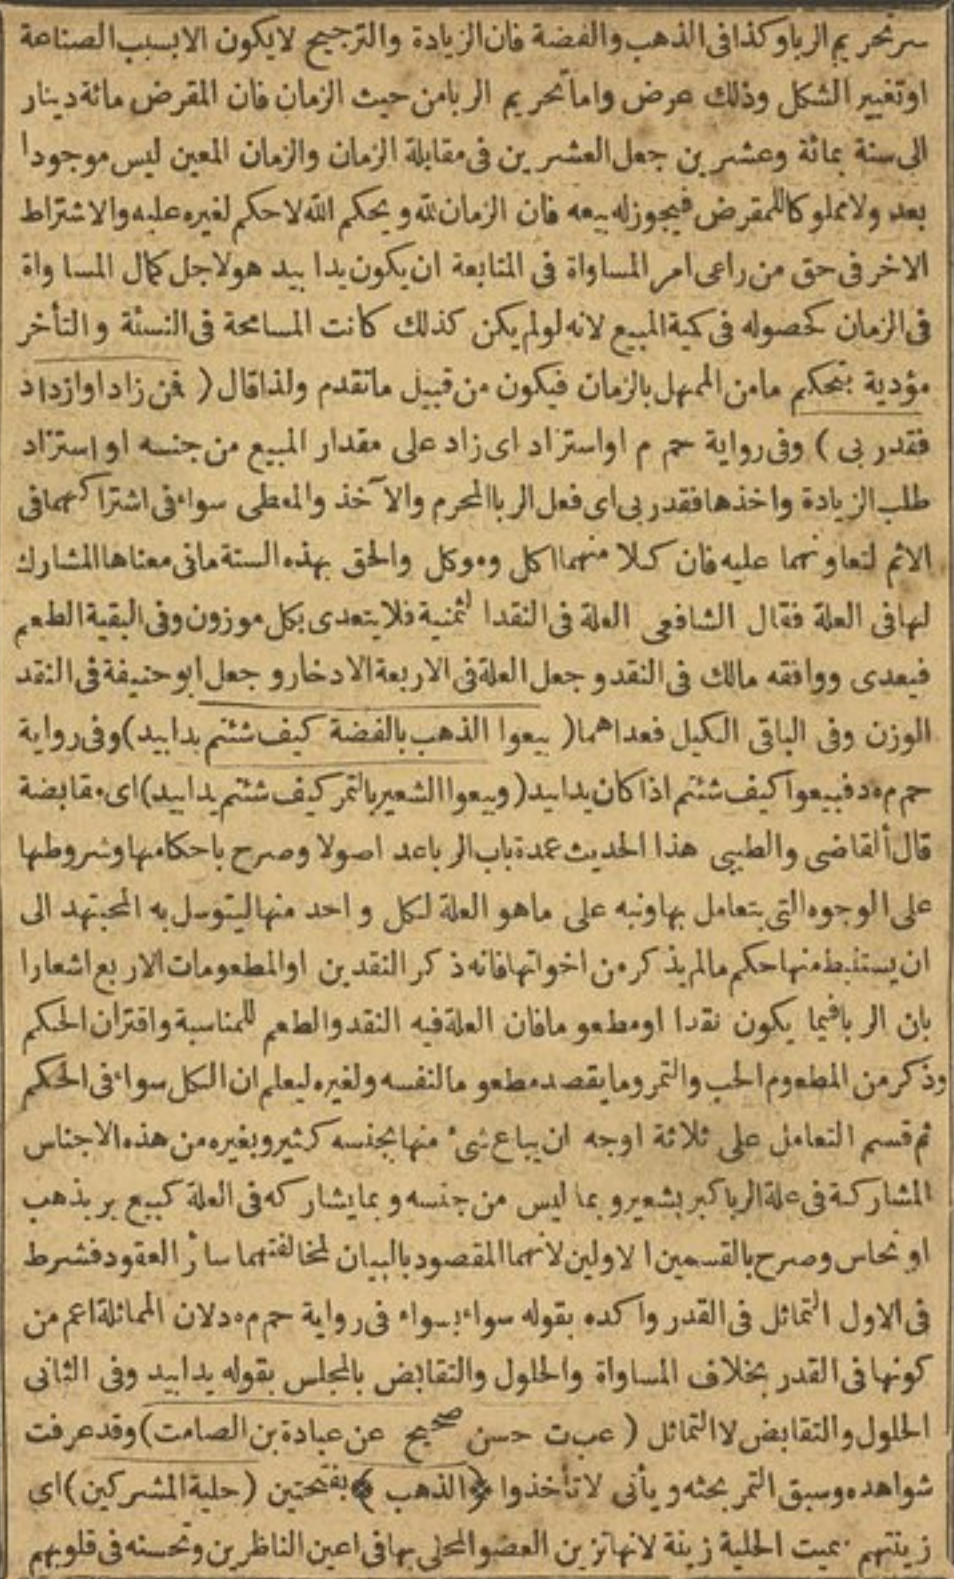 سر تحريم الربا وكذا فى الذهب والفضة فان الزيادة والترجيح لا يكون الا بسبب الصناعة
او تغيير الشكل وذلك عرض واما تحريم الربا من حيث الزمان فان المقرض مائة دينار
الى سنة بمائة وعشرين جعل العشرين فى مقابلة الزمان والزمان المعين ليس موجودا
بعد ولا مملوكا للمقرض فيجوز له بيعه فان الزمان لله و بحكم الله لا حكم لغيره عليه والاشتراط
الاخر فى حق من راعى امر المساواة فى المتابعة ان يكون يدا بيد هو لاجل كمال المساواة
فى الزمان كحصوله فى كمية المبيع لانه لو لم يكن كذلك كانت المسامحة فى النسئة والتأخر
مؤدية بتحكم ما من الممهل بالزمان فيكون من قبيل ما تقدم ولذا قال ( فمن زاد او ازداد
فقد ربى ) وفى رواية حم م او استزاد اى زاد على مقدار المبيع من جنسه او استزاد
طلب الزيادة واخذها فقد ربى اى فعل الربا المحرم والآخذ والمعطى سواء فى اشتراكهما فى
الاثم لتعاونهما عليه فان كلا منهما اكل وموكل والحق بهذه الستة ما فى معناها المشارك
لها فى العلة فقال الشافعى العلة فى النقد الثمنية فلا يتعدى بكل موزون وفى البقية الطعم
فيعدى ووافقه مالك فى النقد و جعل العلة فى الاربعة الادخار و جعل ابو حنيفة فى النقد
الوزن وفى الباقى الكيل فعداهما ( بيعوا الذهب بالفضة كيف شئتم يدا بيد ) وفى رواية
حم م ه د فبيعوا كيف شئتم اذا كان يدا بيد ( وبيعوا الشعير بالتمر كيف شئتم يدا بيد ) اى مقابضة
قال القاضى والطيبى هذا الحديث عمدة باب الربا عد اصولا وصرح باحكامها وشروطها
على الوجوه التى يتعامل بها ونبه على ما هو العلة لكل واحد منها ليتوسل به المجتهد الى
ان يستنبط منها حكم ما لم يذكر من اخواتها فانه ذكر النقدين او المطعومات الاربع اشعارا
بان الربا فيما يكون نقدا او مطعوما فان العلة فيه النقد والطعم للمناسبة واقتران الحكم
وذكر من المطعوم الحب والتمر وما يقصد مطعوما لنفسه ولغيره ليعلم ان الكل سواء فى الحكم
ثم قسم التعامل على ثلاثة اوجه ان يباع شئ منها بجنسه كثير وبغيره من هذه الاجناس
المشاركة فى علة الربا كبر بشعير و بما ليس من جنسه و بما يشاركه فى العلة كبيع بر بذهب
او نحاس وصرح بالقسمين الاولين لانهما المقصود بالبيان لمخالفتهما سائر العقود فشرط
فى الاول التماثل فى القدر واكده بقوله سواء بسواء فى رواية حم م ه د لان المماثلة اعم من
كونها فى القدر بخلاف المساواة والحلول والتقابض بالمجلس بقوله يدا بيد وفى الثانى
الحلول والتقابض لا التماثل ( عب ت حسن صحيح عن عبادة بن الصامت ) وقد عرفت
شواهده وسبق التمر بحثه و يأتى لا تأخذوا ﴿ الذهب ﴾ بفتحتين ( حلية المشركين ) اى
زينتهم سميت الحلية زينة لانها تزين العضو المحلى بها فى اعين الناظرين وتحسنه فى قلوبهم